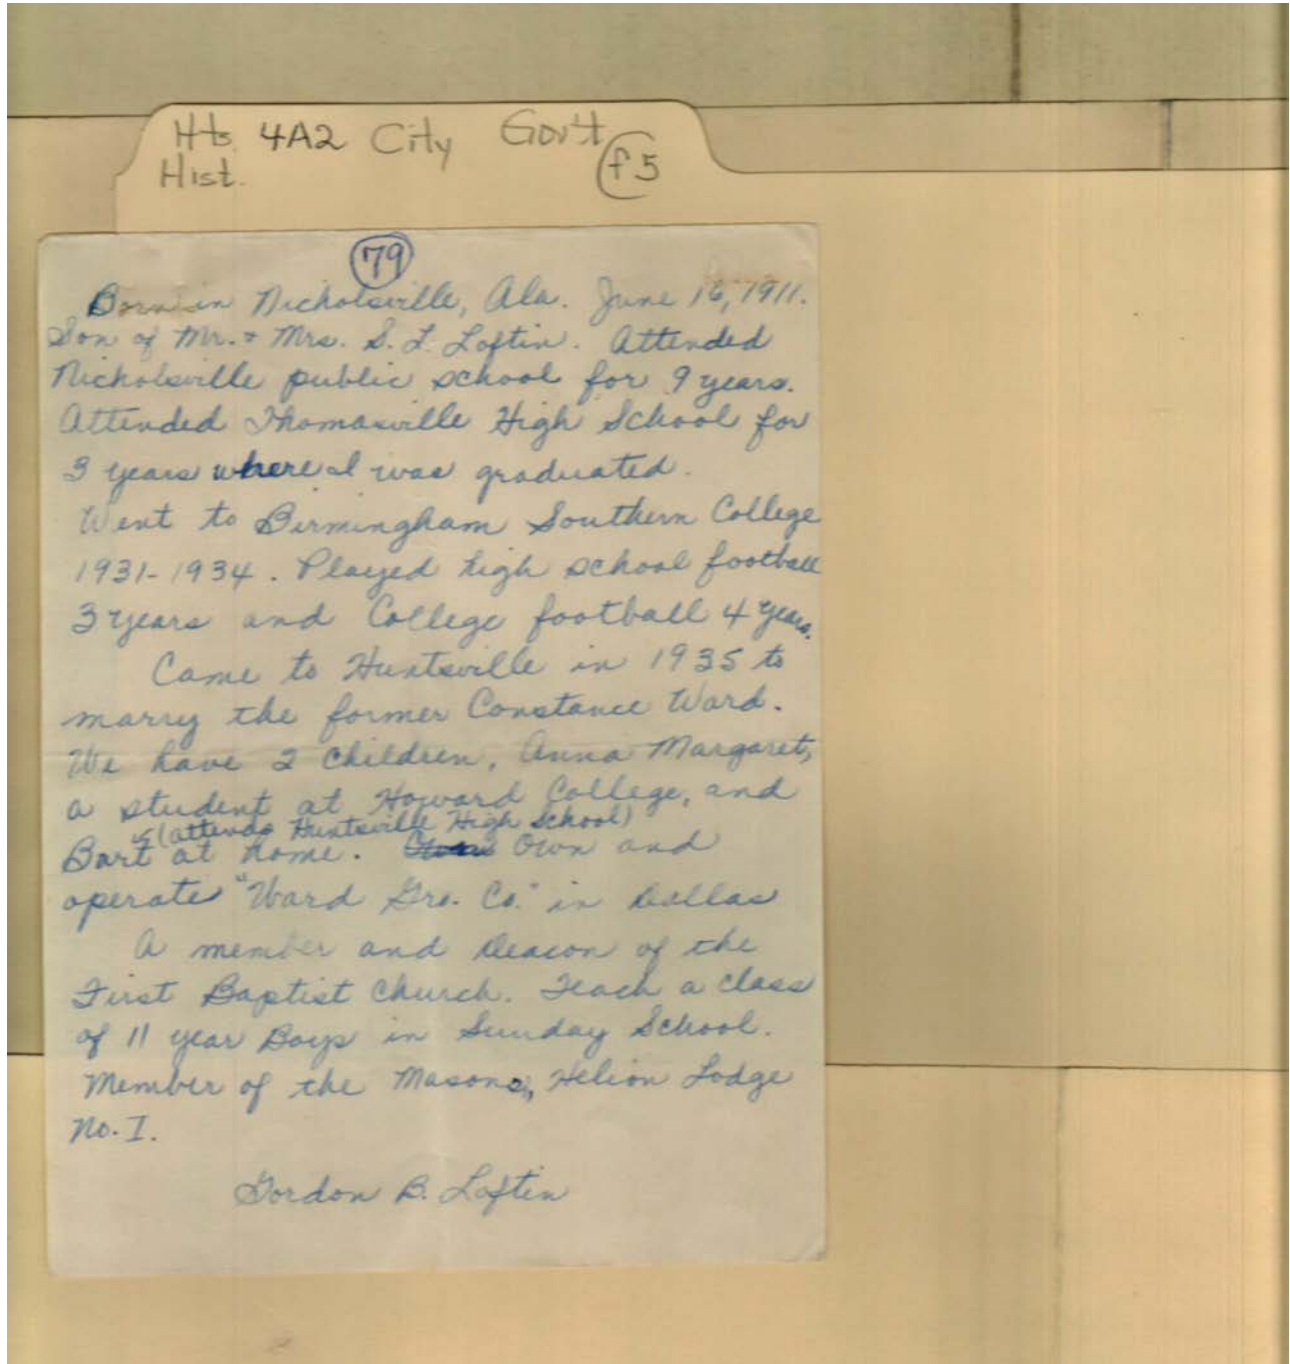 Hts. 4A2 City Gov't
Hist. f5
79
Born in Nicholsville, Ala. June 16, 1911.
Son of Mr. & Mrs. S. L. Loftin. Attended
Nicholsville public school for 9 years.
Attended Thomasville High School for
3 years where I was graduated.
Went to Birmingham Southern College
1931-1934. Played high school football
3 years and College football 4 years.
Came to Huntsville in 1935 to
marry the former Constance Ward.
We have 2 children, Anna Margaret,
a student at Howard College, and
(attends Huntsville High School)
Bart at home. Own and
operate "Ward Gro. Co." in Dallas
A member and Deacon of the
First Baptist Church. Teach a class
of 11 year Boys in Sunday School.
Member of the Masons, Helion Lodge
No. I.
Gordon B. Loftin